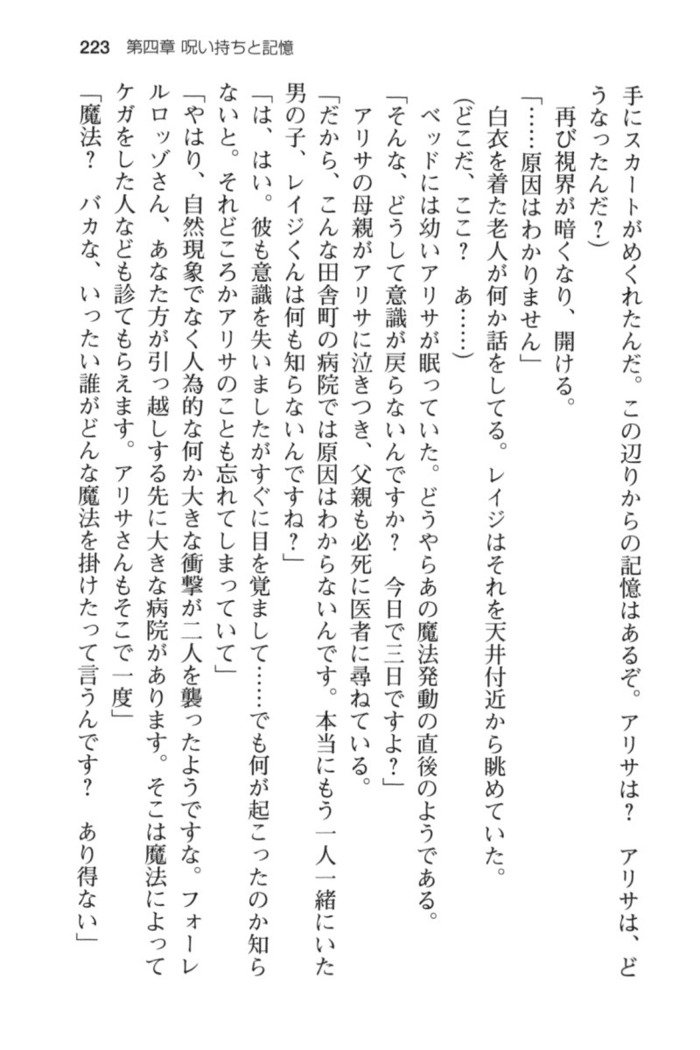 223　第四章 呪い持ちと記憶
手にスカートがめくれたんだ。この辺りからの記憶はあるぞ。アリサは？　アリサは、ど
うなったんだ？）
　再び視界が暗くなり、開ける。
「……原因はわかりません」
　白衣を着た老人が何か話をしてる。レイジはそれを天井付近から眺めていた。
（どこだ、ここ？　あ……）
　ベッドには幼いアリサが眠っていた。どうやらあの魔法発動の直後のようである。
「そんな、どうして意識が戻らないんですか？　今日で三日ですよ？」
　アリサの母親がアリサに泣きつき、父親も必死に医者に尋ねている。
「だから、こんな田舎町の病院では原因はわからないんです。本当にもう一人一緒にいた
男の子、レイジくんは何も知らないんですね？」
「は、はい。彼も意識を失いましたがすぐに目を覚まして……でも何が起こったのか知ら
ないと。それどころかアリサのことも忘れてしまっていて」
「やはり、自然現象でなく人為的な何か大きな衝撃が二人を襲ったようですな。フォーレ
ルロッゾさん、あなた方が引っ越しする先に大きな病院があります。そこは魔法によって
ケガをした人なども診てもらえます。アリサさんもそこで一度」
「魔法？　バカな、いったい誰がどんな魔法を掛けたって言うんです？　あり得ない」